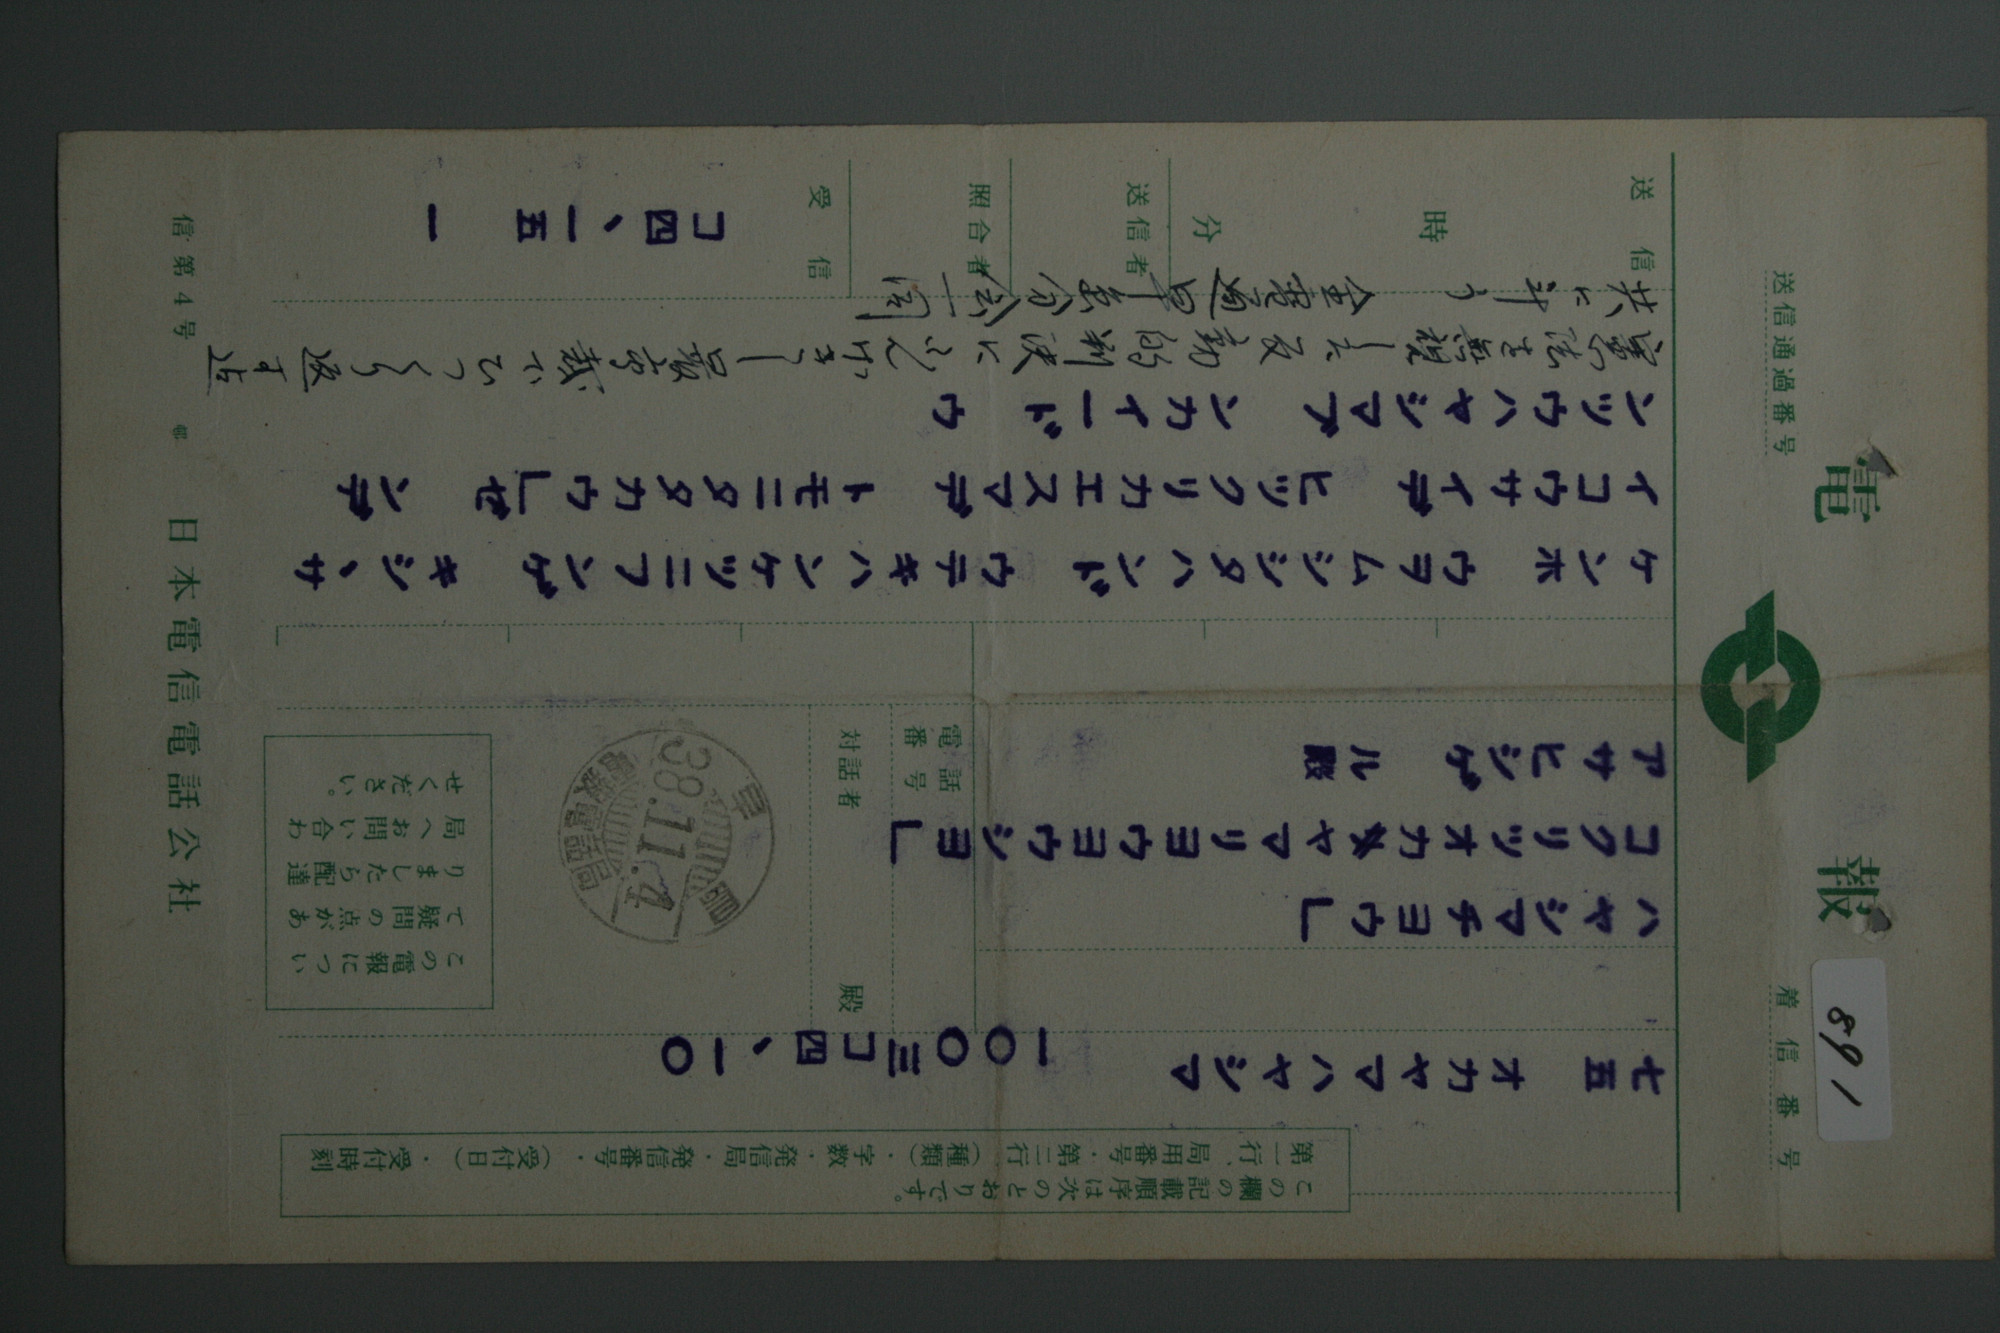 電報
着信番号
891
送信通過番号
この欄の記載順序は次のとおりです。
第一行、局用番号・第二行(種類)・字数・発信局・発信番号・(受付日)・受付時刻
七五 オカヤマハヤシマ 一〇〇三コ四、一〇
ハヤシマチヨウ」
コクリツオカヤマリヨウヨウシヨ」
アサヒシゲ ル殿
電話番号
対話者 殿
早島
38.11.4
電報電話局
この電報につい
て疑問の点があ
りましたら配達
局へお問い合わ
せください。
ケンホ ウヲムシシタハンド ウテキハンケツニフンゲ キシ、サ
イコウサイデ ヒツクリカエスマデ トモニタタカウ」ゼ ンデ
ンツウハヤシマブ ンカイード ウ
憲法を無視した反動的判決にふんげきし最高裁でひっくり返す迄
共に斗う 全電通早島分会一同
送信 時 分
送信者
照合者
受信
コ四、一五 一
信・第4号
日本電信電話公社